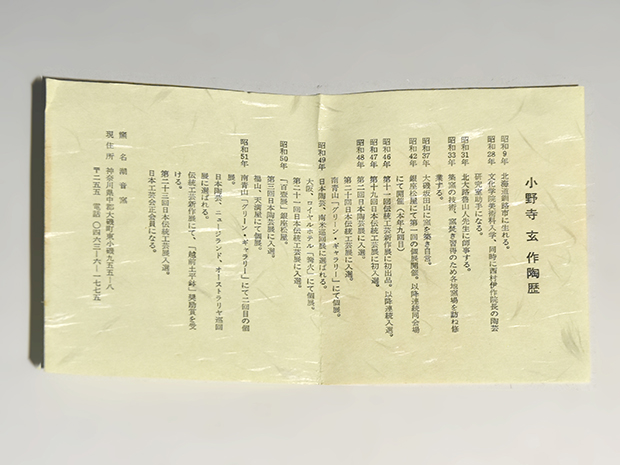 小野寺 玄 作陶歴
昭和9年 北海道釧路市に生れる。
昭和28年 文化学院美術科入学、同時に西村伊作院長の陶芸
研究室助手になる。
昭和31年 北大路魯山人先生に師事する。
昭和33年 築窯の技術、窯焚き習得のため各地窯場を訪ね修
業する。
昭和37年 大磯坂田山に窯を築き自営。
昭和42年 銀座松屋にて第一回の個展開催。以降連続同会場
にて開催（本年九回目）
昭和46年 第十一回伝統工芸新作展に初出品。以降連続入選。
昭和47年 第十九回日本伝統工芸展に初入選。
昭和48年 第二回日本陶芸展に入選。
第二十回日本伝統工芸展に入選。
南青山「グリーン・ギャラリー」にて個展。
昭和49年 日本陶芸、南米巡回展に選ばれる。
大阪、ロイヤルホテル「陶火」にて個展。
第二十一回日本伝統工芸展に入選。
昭和50年 「百壺展」銀座松屋。
第三回日本陶芸展に入選。
福山、天満屋にて個展。
昭和51年 南青山「グリーン・ギャラリー」にて二回目の個
展。
日本陶芸、ニュージランド、オーストラリヤ巡回
展に選ばれる。
伝統工芸新作展にて、「越前土平鉢」奨励賞を受
ける。
第二十三回日本伝統工芸展に入選。
日本工芸会正会員になる。
窯 名 潮音窯
現住所 神奈川県中郡大磯町東小磯九五五-八
〒二五五 電話 〇四六三-六一-一七七五